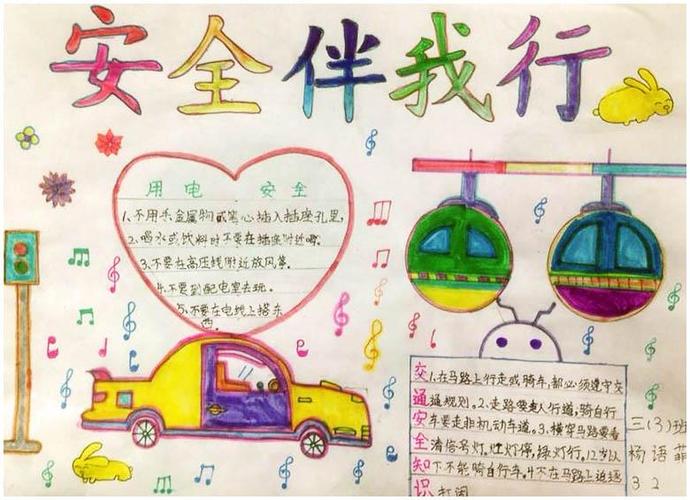 安全伴我行
用电 安全
1、不用手、金属物或笔心插入插座孔里,
2、喝水或饮料时不要在插座附近喝。
3、不要在高压线附近放风筝。
4、不要到配电室去玩。
5、不要在电线上搭东
西。
交通安全知识
1、在马路上行走或骑车,都必须遵守交
通规则。2、走路要走人行道,骑自行
车要走非机动车道。3、横穿马路要看
清信号灯。红灯停,绿灯行。12岁以
下不能骑自行车。4、不在马路上追逐
打闹
三(3)班
杨语菲
32